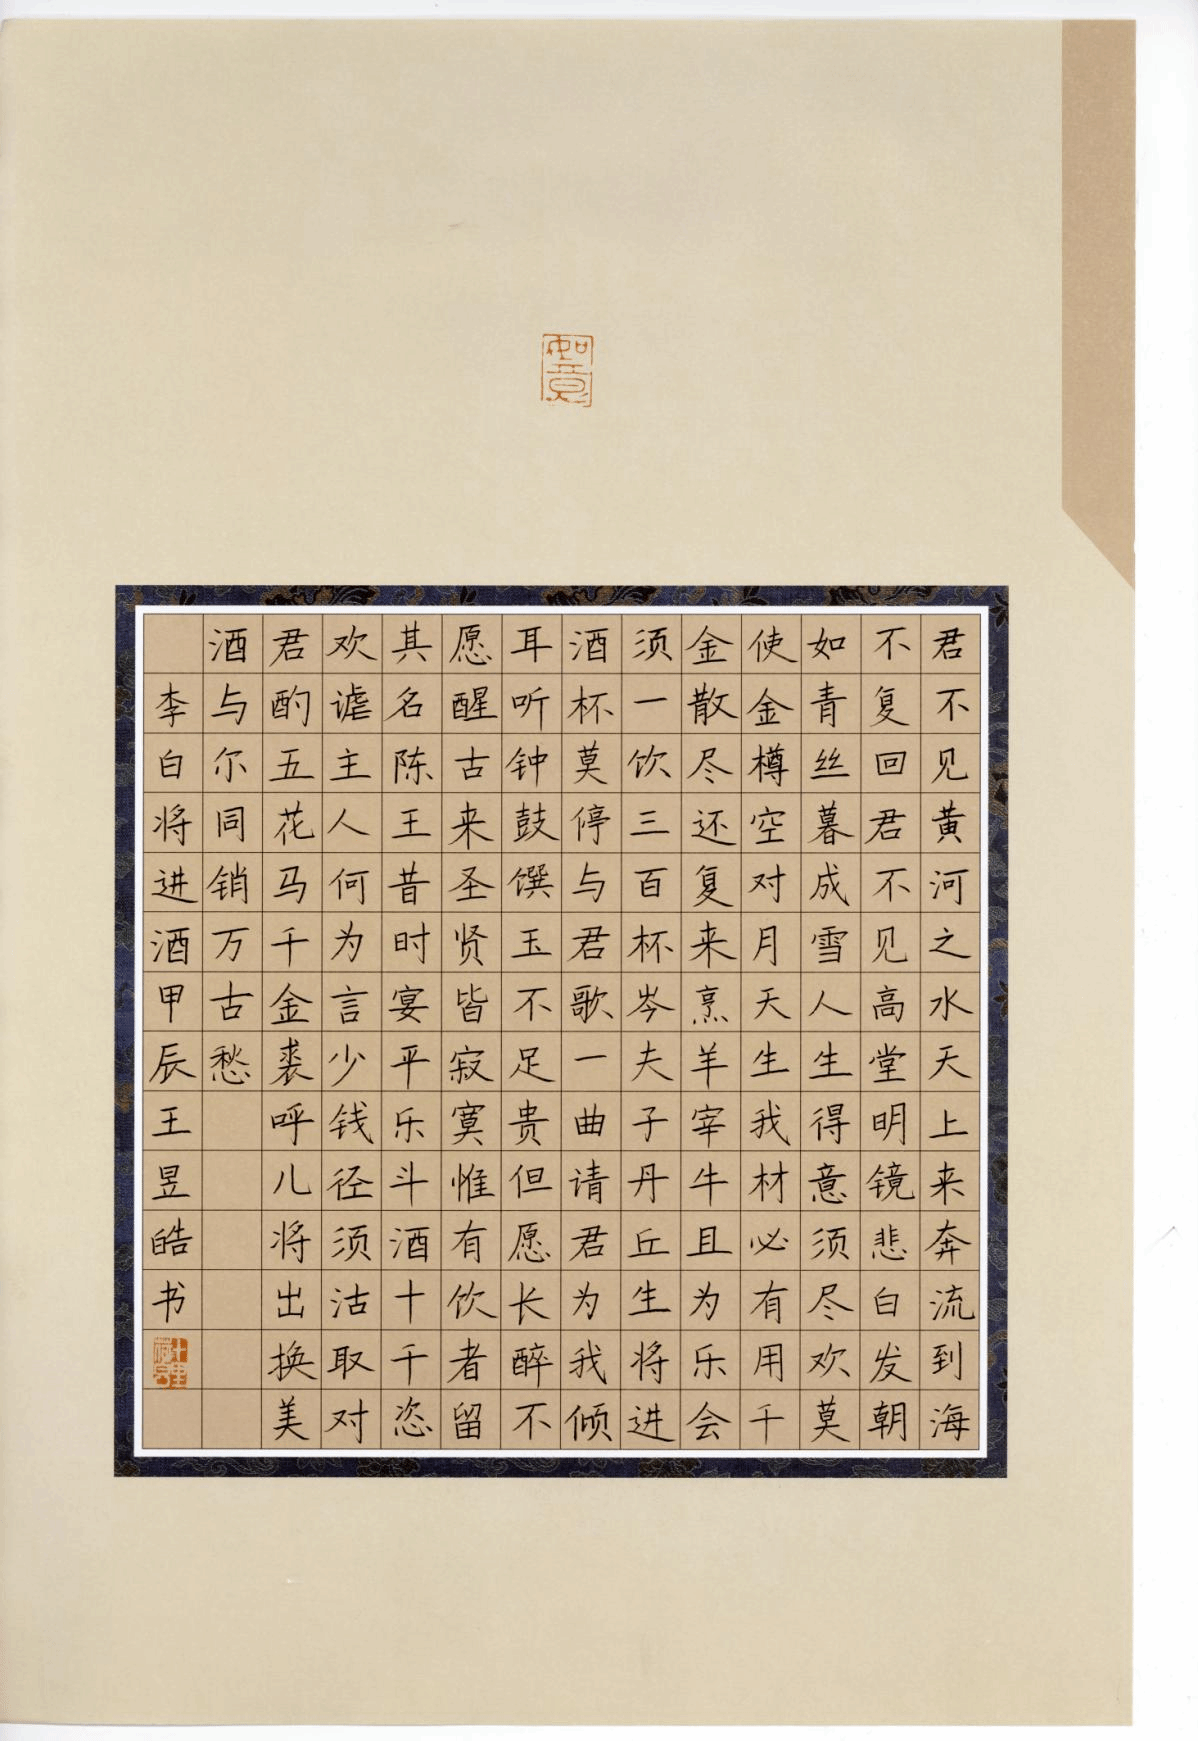 如意
君不见黄河之水天上来奔流到海
不复回君不见高堂明镜悲白发朝
如青丝暮成雪人生得意须尽欢莫
使金樽空对月天生我材必有用千
金散尽还复来烹羊宰牛且为乐会
须一饮三百杯岑夫子丹丘生将进
酒杯莫停与君歌一曲请君为我倾
耳听钟鼓馔玉不足贵但愿长醉不
愿醒古来圣贤皆寂寞惟有饮者留
其名陈王昔时宴平乐斗酒十千恣
欢谑主人何为言少钱径须沽取对
君酌五花马千金裘呼儿将出换美
酒与尔同销万古愁
李白将进酒甲辰王昱皓书